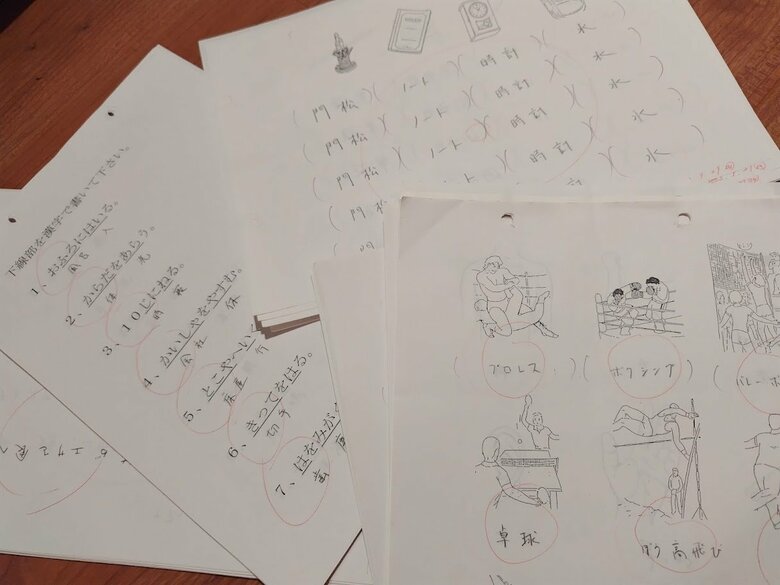 (門松)(ノート)(時計)(水)
(門松)(ノート)(時計)(水)
(門松)(ノート)(時計)(水)
(門松)(ノート)(時計)(水)
下線部を漢字で書いて下さい。
1、おふろにはいる。
風呂 入
2、からだをあらう。
体
3、10じにねる。
時 寝
4、かいしゃをやすむ。
会社 休
5、とこやへい
床屋 行
6、きってをはる。
切手
7、はをみが
歯
(プロレス)(ボクシング)(バレーボ
卓球 ぼう高飛び